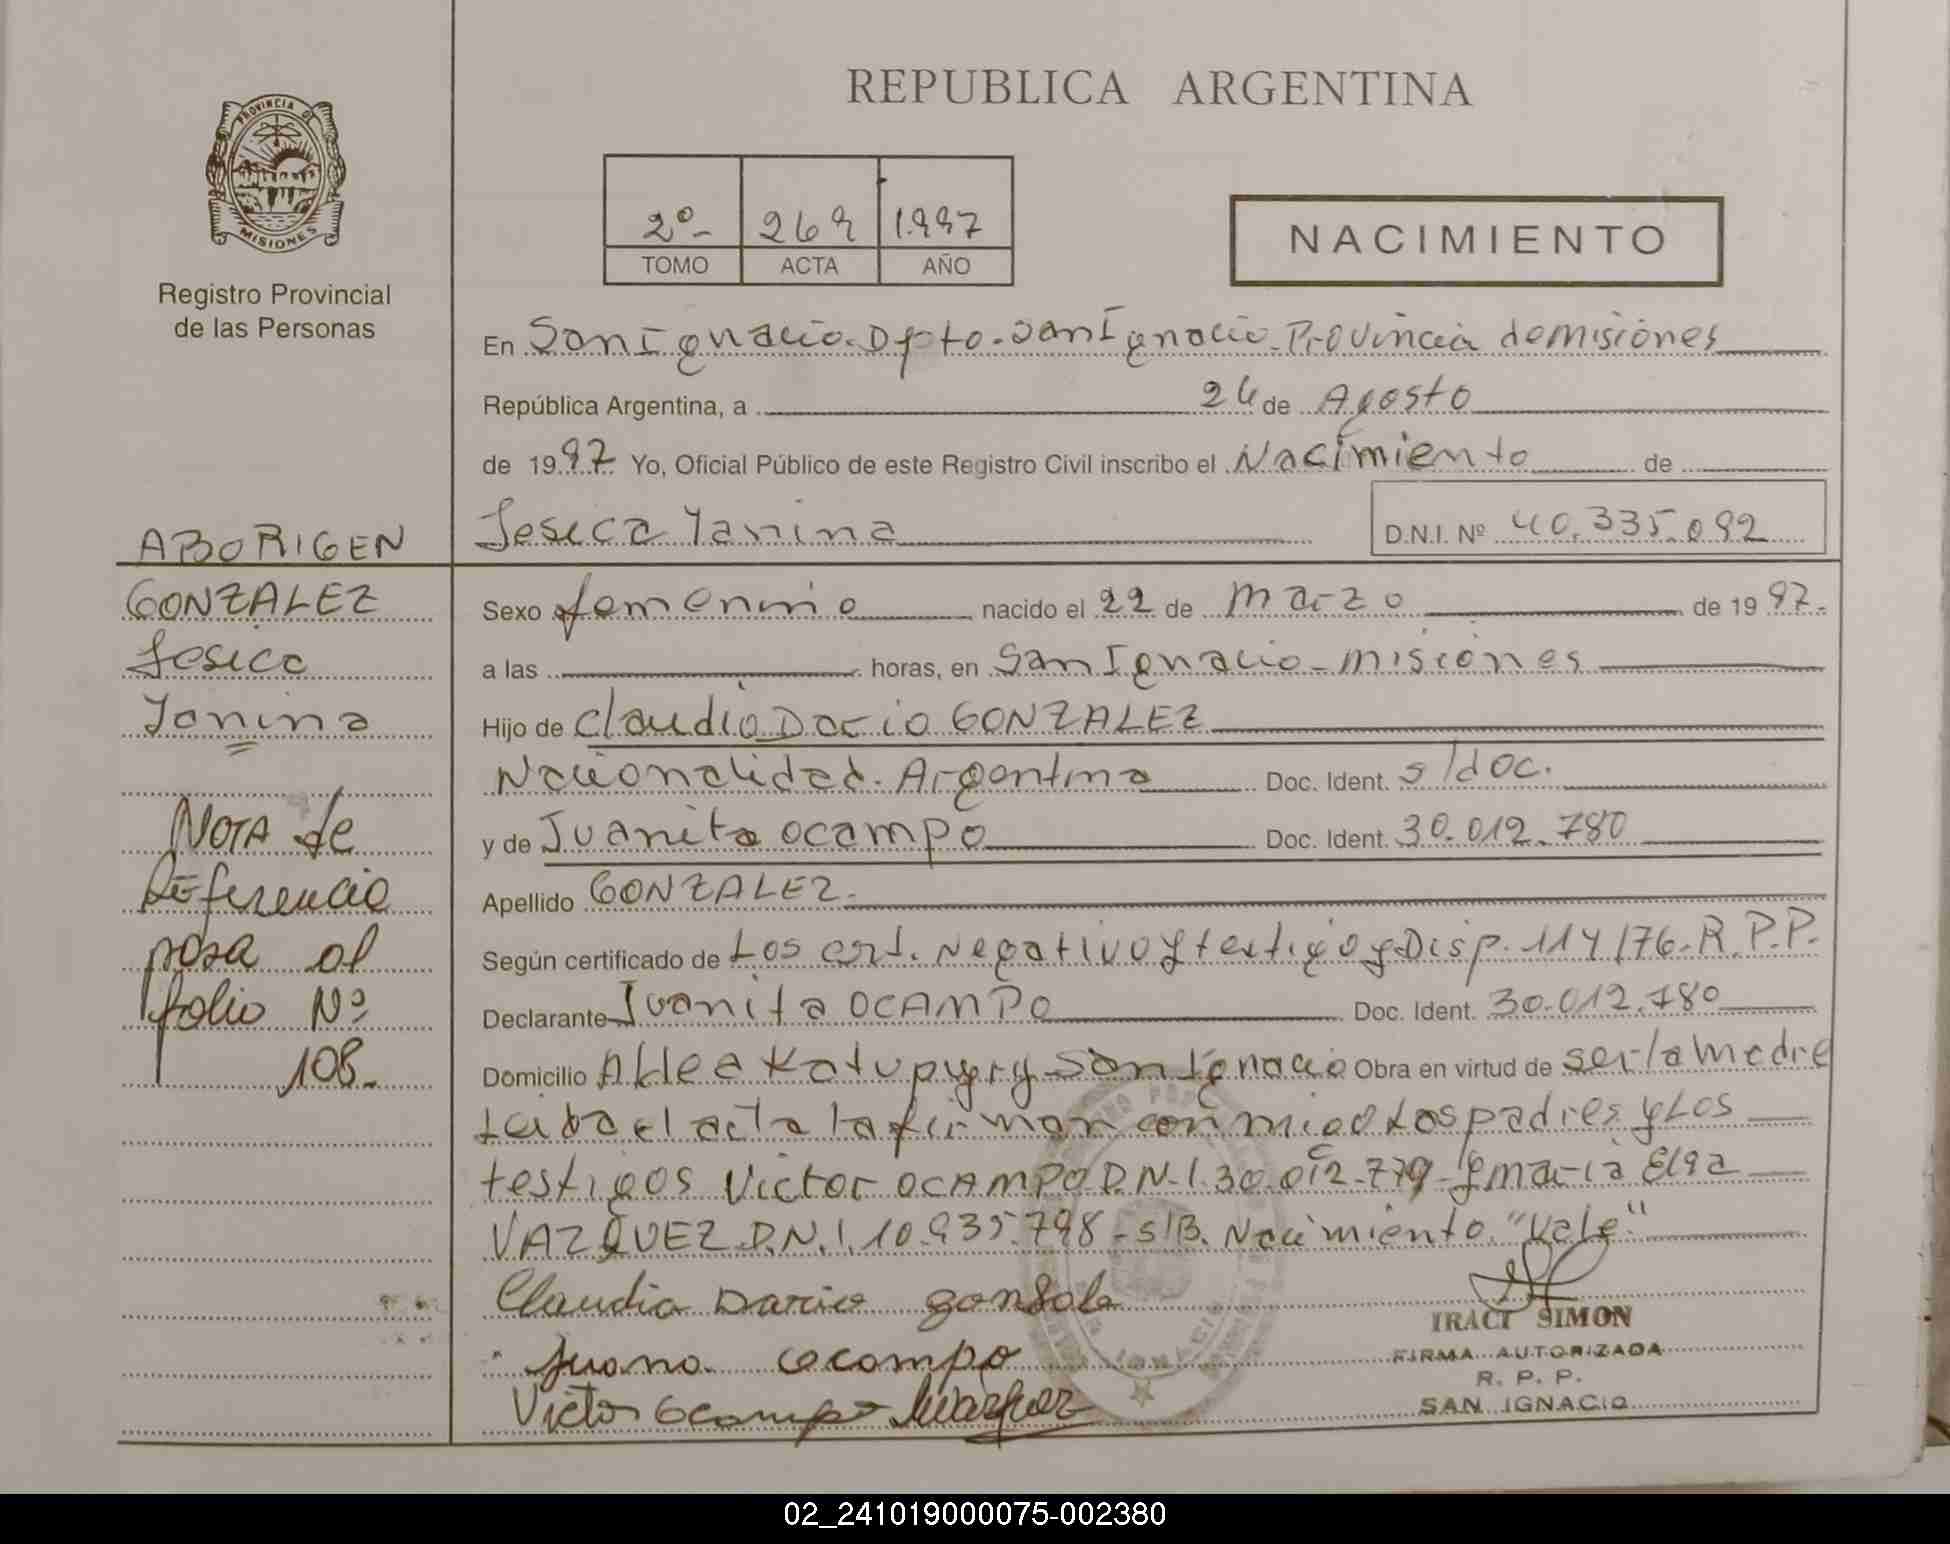 REPUBLICA ARGENTINA
PROVINCIA DE
MISIONES
Registro Provincial
de las Personas
2º- 269 1.997
TOMO ACTA AÑO
NACIMIENTO
En San Ignacio. Dpto. San Ignacio. Provincia de misiones
República Argentina, a 26 de Agosto
de 1997 Yo, Oficial Público de este Registro Civil inscribo el Nacimiento de
Jeseca Yanina D.N.I. Nº 40.335.092
ABORIGEN
GONZALEZ
Jesica
Yanina
NOTA de
Referencia
pasa al
folio Nº
108-
Sexo femenino nacido el 22 de marzo de 1997-
a las horas, en San Ignacio - misiones
Hijo de Claudio Dario GONZALEZ
Nacionalidad. Argentina Doc. Ident. s/doc.
y de Juanita ocampo Doc. Ident. 30.012.780
Apellido GONZALEZ-
Según certificado de Los cert. Negativo y testigo y Disp. 114/76-R.P.P.
Declarante Juanita OCAMPO Doc. Ident. 30.012.780
Domicilio Aldea Katupyry San Ignacio Obra en virtud de ser la madre
Leida el acta la firman con migo Los padres y Los
testigos Victor OCAMPO D.N.I. 30.012.779- y maria Elsa
VAZQUEZ D.N.I. 10.935.798 - S/B. Nacimiento. "Vale"
Claudia Dario gonsale
Juana ocampo
Victor Ocampo MVazquez
IRACI SIMON
FIRMA AUTORIZADA
R. P. P.
SAN IGNACIO
02_241019000075-002380